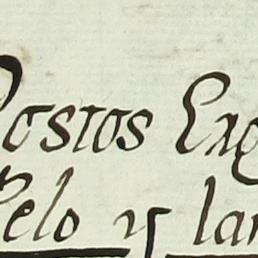 Postos Exq
Pelo y lan